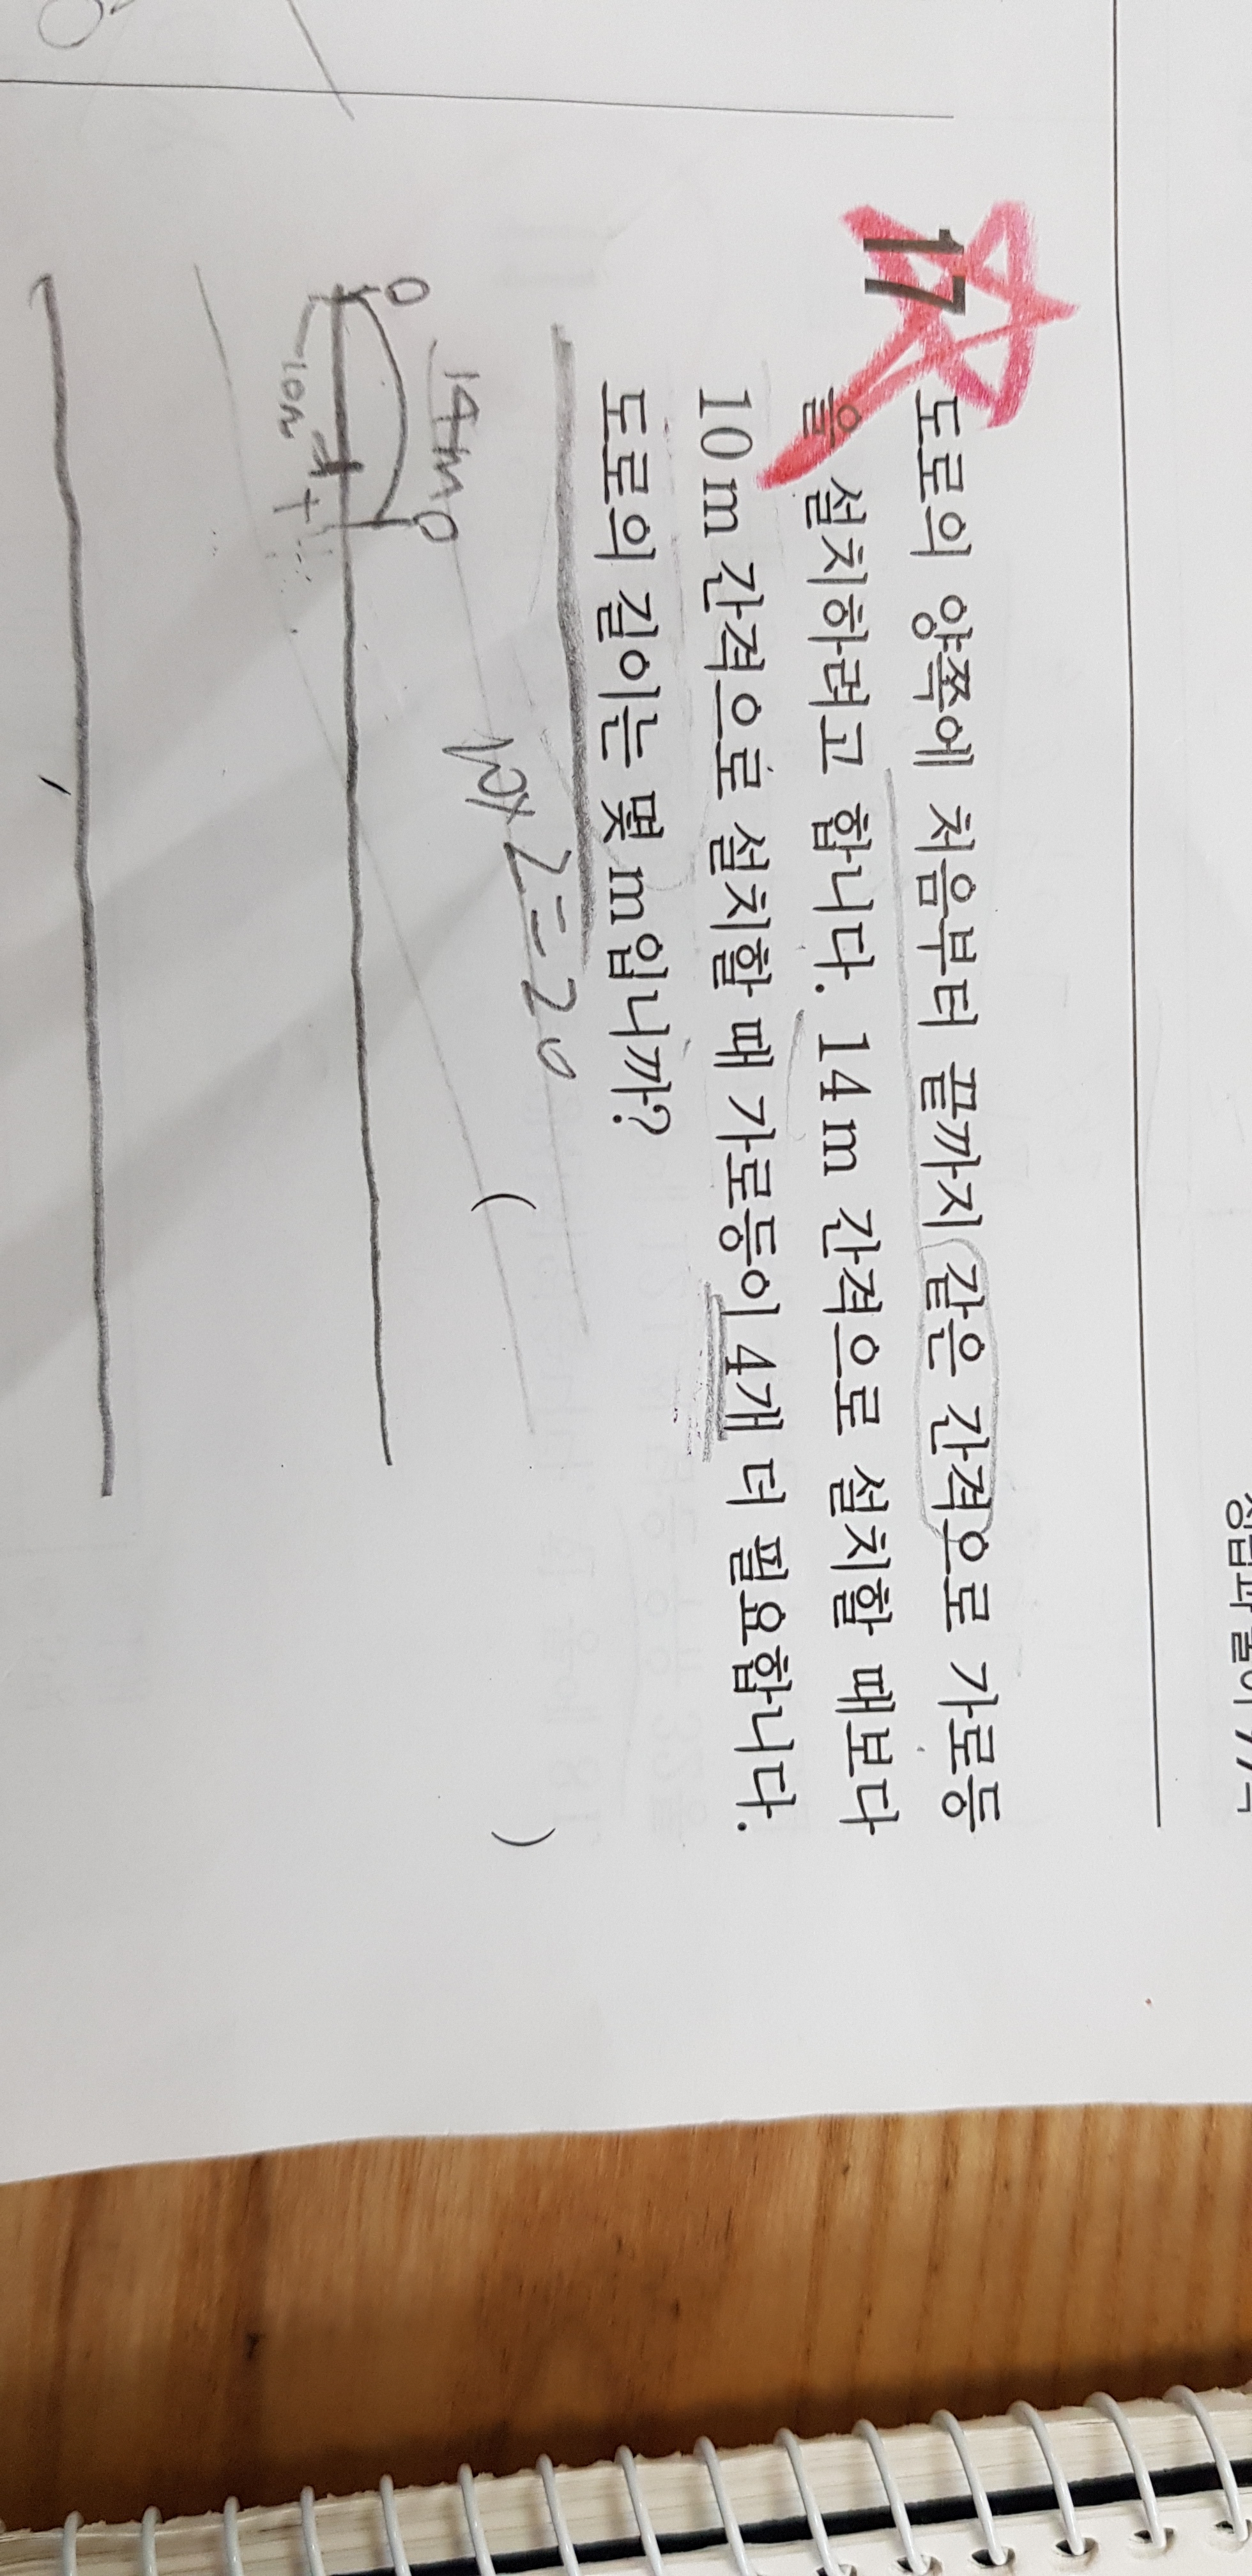 17 도로의 양쪽에 처음부터 끝까지 같은 간격으로 가로등
을 설치하려고 합니다. 14 m 간격으로 설치할 때보다
10 m 간격으로 설치할 때 가로등이 4개 더 필요합니다.
도로의 길이는 몇 m입니까?
( )
14m
10×2=20
10m